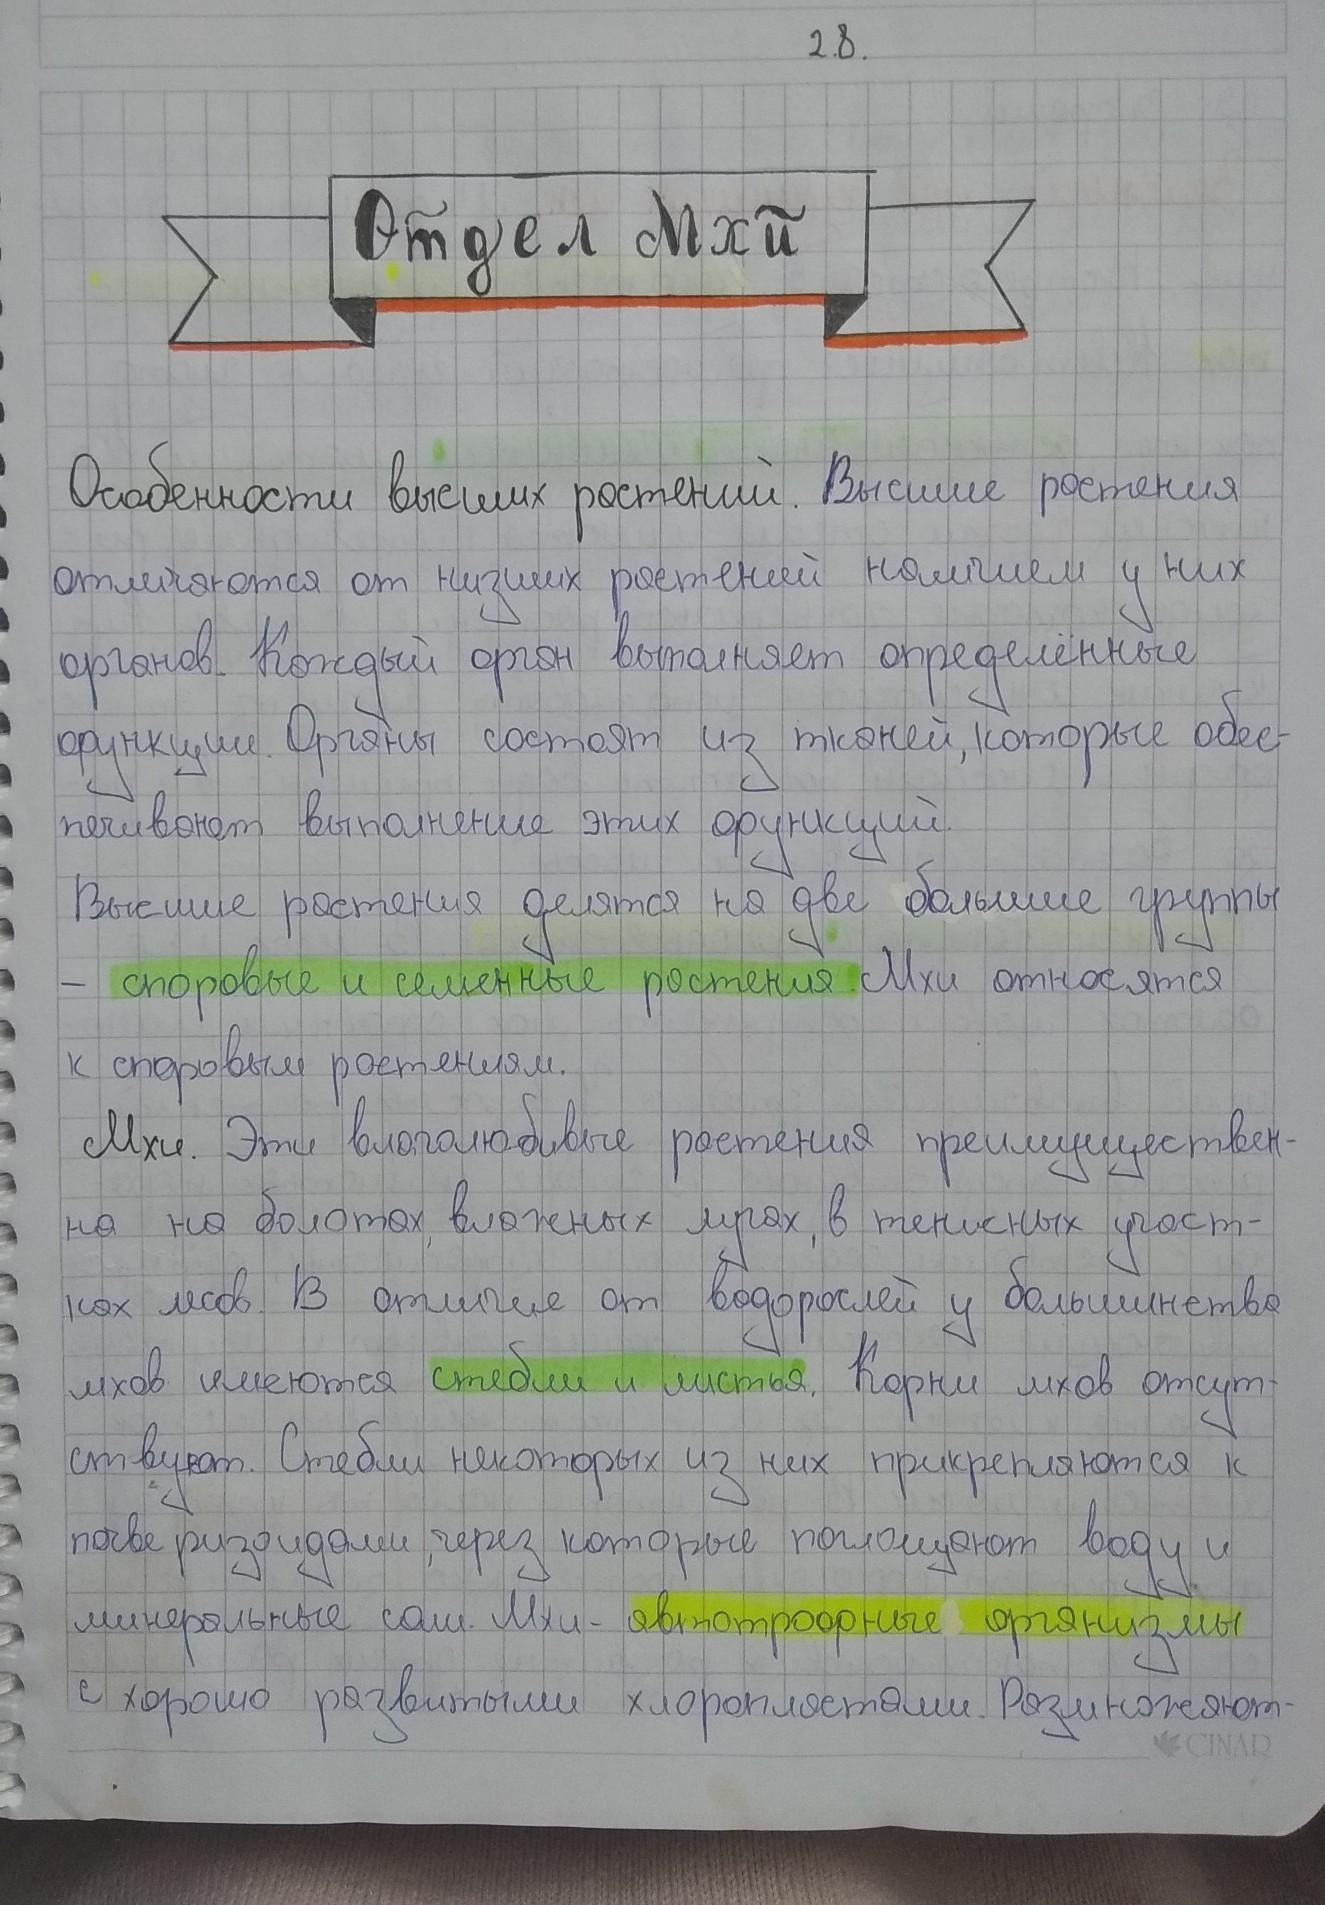 2.8.
Отдел Мхи
Особенности высших растений. Высшие растения
отличаются от низших растений наличием у них
органов. Каждый орган выполняет определённые
функции. Органы состоят из тканей, которые обес-
печивают выполнение этих функций.
Высшие растения делятся на две большие группы
- споровые и семенные растения. Мхи относятся
к споровым растениям.
Мхи. Эти влаголюбивые растения преимуществен-
но на болотах, влажных лугах, в тенистых участ-
ках лесов. В отличие от водорослей у большинства
мхов имеются стебли и листья. Корни мхов отсут-
ствуют. Стебли некоторых из них прикрепляются к
почве ризоидами, через которые поглощают воду и
минеральные соли. Мхи - автотрофные организмы
с хорошо развитыми хлоропластами. Размножают-
CINAR